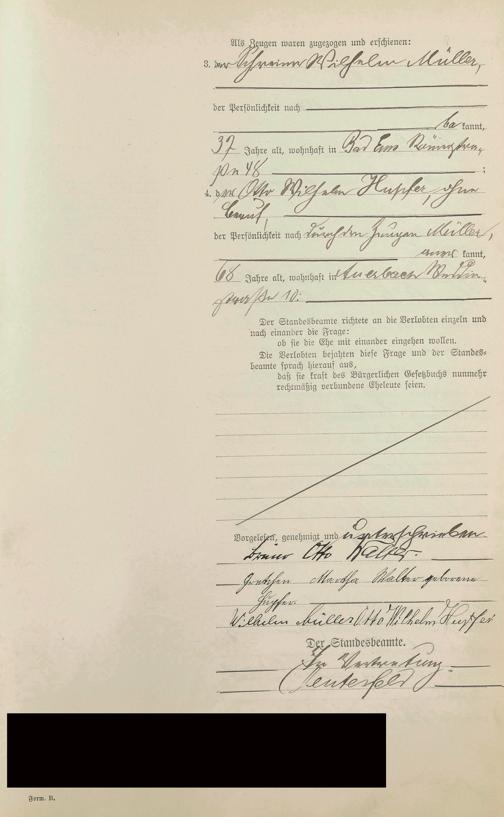 Als Zeugen waren zugezogen und erschienen:
3. der Schreiner Wilhelm Müller,
der Persönlichkeit nach
be kannt,
37 Jahre alt, wohnhaft in Bad Ems Römerstra-
ße 48 ;
4. der Otto Wilhelm Hupfer, ohne
Beruf,
der Persönlichkeit nach durch den Zeugen Müller,
aner kannt,
68 Jahre alt, wohnhaft in Auerbach
straße 10.
Der Standesbeamte richtete an die Verlobten einzeln und
nach einander die Frage:
ob sie die Ehe mit einander eingehen wollen.
Die Verlobten bejahten diese Frage und der Standes-
beamte sprach hierauf aus,
daß sie kraft des Bürgerlichen Gesetzbuchs nunmehr
rechtmäßig verbundene Eheleute seien.
Vorgelesen, genehmigt und unterschrieben
Otto Walter.
Gretchen Martha Walter geborene
Hupfer
Wilhelm Müller Otto Wilhelm Hupfer
Der Standesbeamte.
In Vertretung.
Form. B.